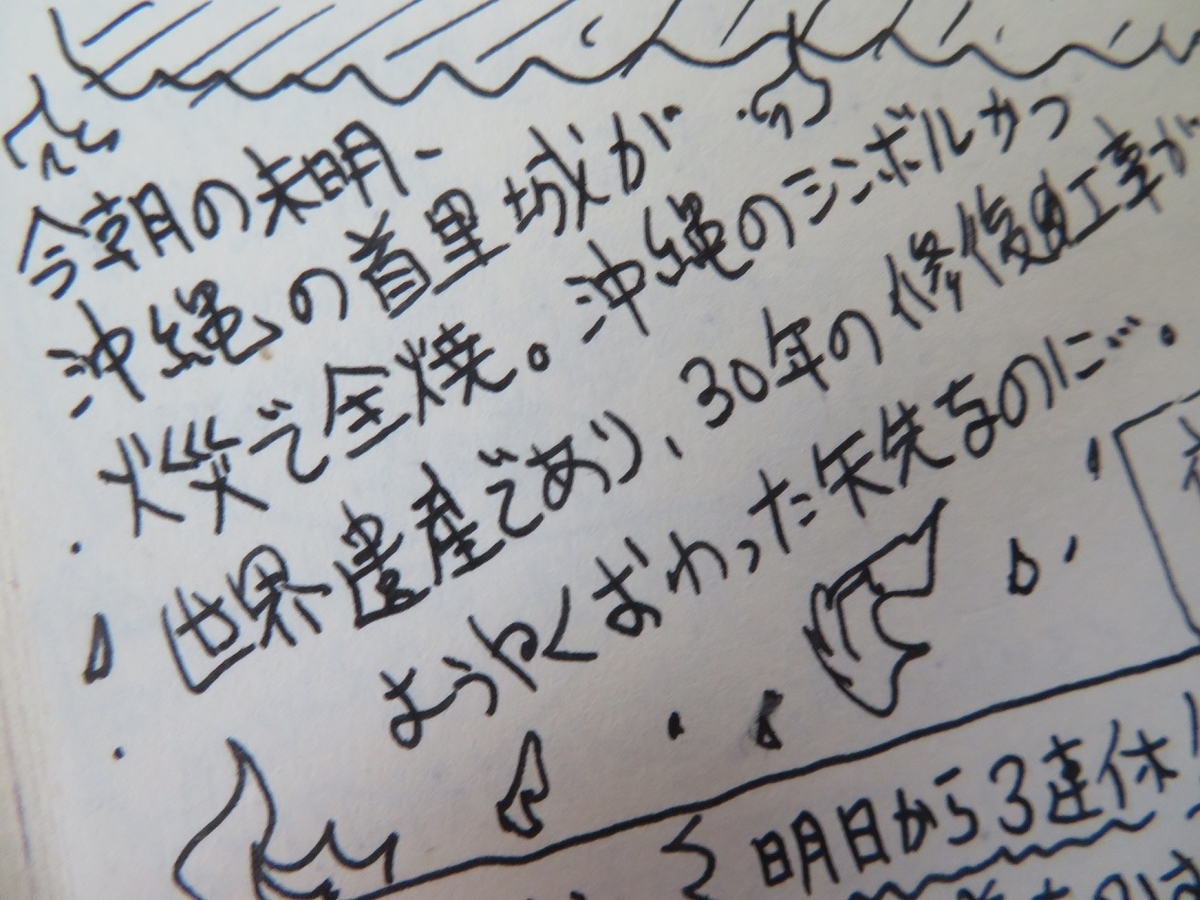 今朝の未明、
沖縄の首里城が
火災で全焼。沖縄のシンボルかつ
世界遺産であり、30年の修復工事が
ようやくおわった矢先なのに…。
明日から3連休